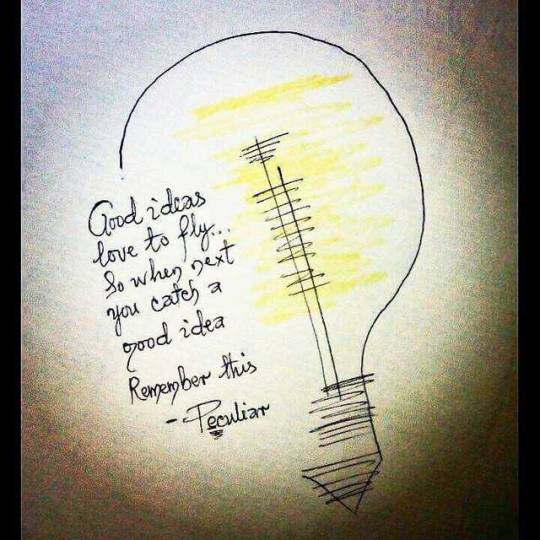 Good ideas
love to fly...
So when next
you catch a
good idea
Remember this
- Peculiar